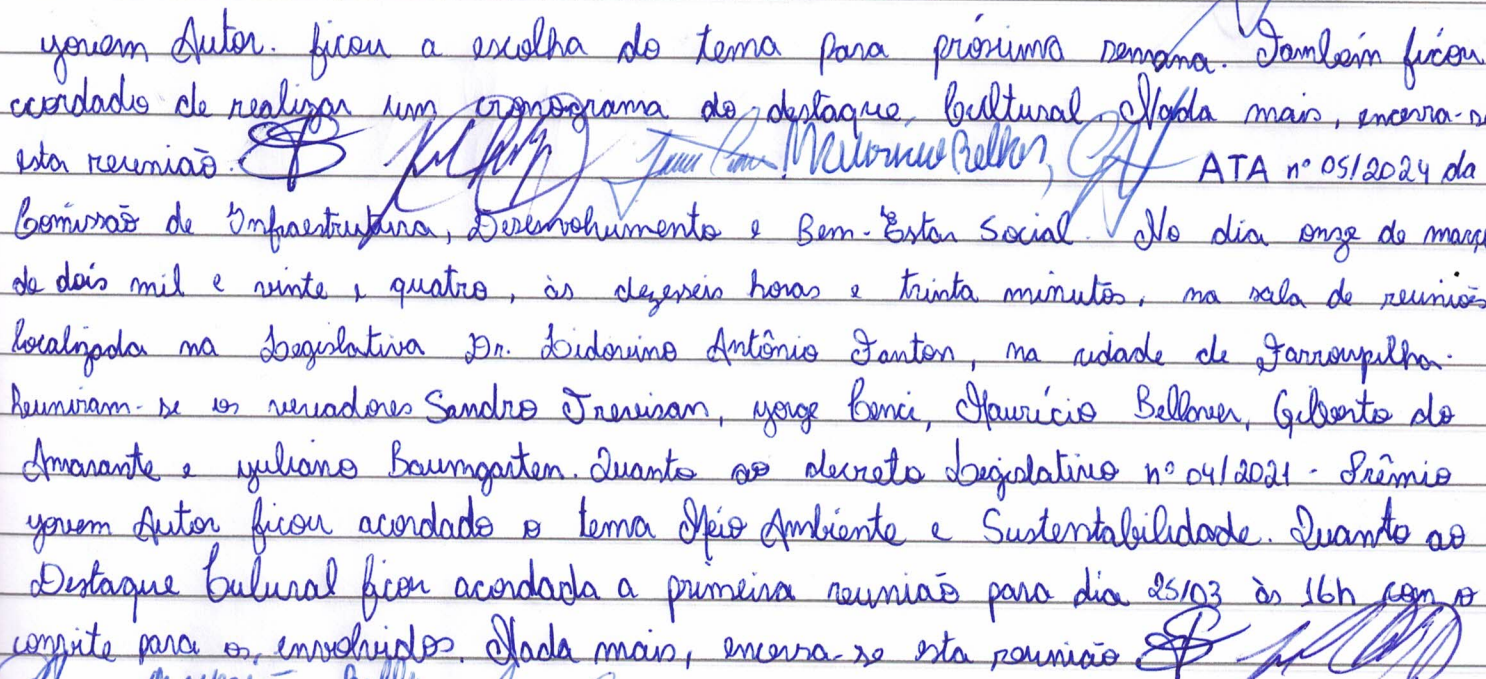 Jovem Autor. ficou a escolha do tema para próxima semana. Também ficou
acordado de realizar um cronograma do destaque Cultural. Nada mais, encerra-se
esta reunião. ATA nº 05/2024 da
Comissão de Infraestrutura, Desenvolvimento e Bem-Estar Social. No dia onze de março
de dois mil e vinte e quatro, às dezesseis horas e trinta minutos, na sala de reuniões
localizada na Legislativa Dr. Lidovino Antônio Fanton, na cidade de Farroupilha.
Reuniram-se os vereadores Sandro Trevisan, Jorge Cenci, Maurício Bellaver, Gilberto do
Amarante e Juliano Baumgarten. Quanto ao decreto Legislativo nº 04/2021 - Prêmio
Jovem Autor ficou acordado o tema Meio Ambiente e Sustentabilidade. Quanto ao
Destaque Culural ficou acordada a primeira reunião para dia 25/03 às 16h com o
convite para os envolvidos. Nada mais, encerra-se esta reunião